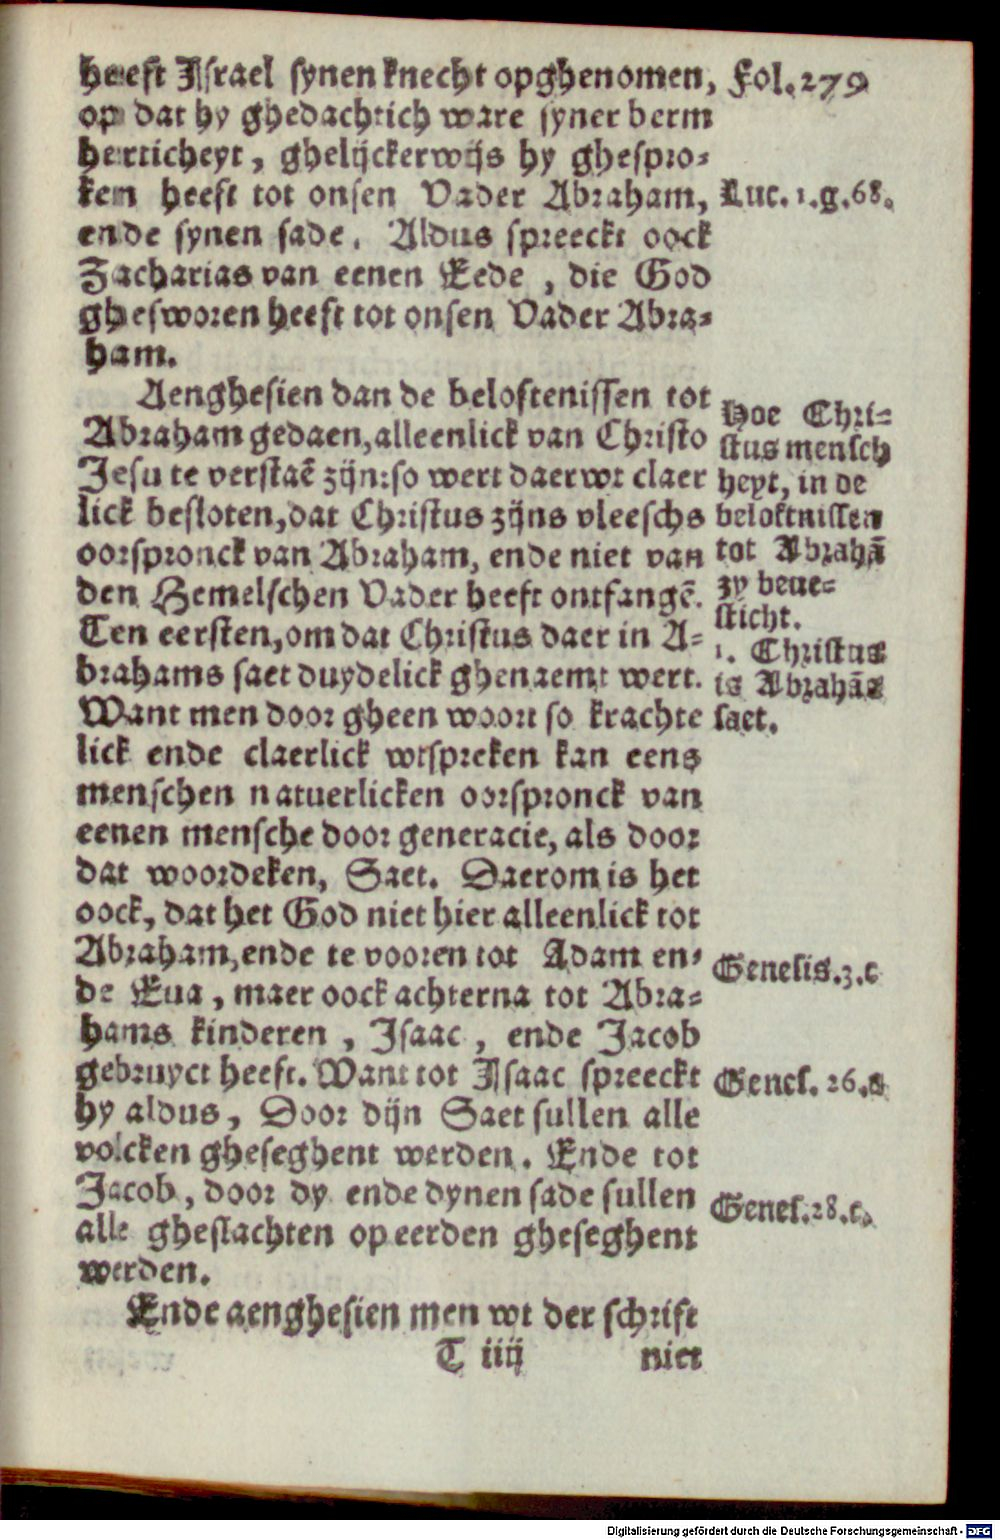 heeft Israel synen knecht opghenomen,
Fol. 279
op dat hy ghedachtich ware syner berm
herticheyt, ghelijckerwijs hy ghespro-
ken heeft tot onsen Vader Abraham,
Luc. 1. g. 68.
ende synen sade. Aldus spreeckt oock
Zacharias van eenen Eede, die God
ghesworen heeft tot onsen Vader Abra-
ham.
Aenghesien dan de beloftenissen tot
Abraham gedaen, alleenlick van Christo
Jesu te verstaē zijn: so wert daer wt claer
lick besloten, dat Christus zijns vleeschs
oorspronck van Abraham, ende niet van
den Hemelschen Vader heeft ontfangē.
Ten eersten, om dat Christus daer in A-
brahams saet duydelick ghenaemt wert.
Want men door gheen woort so krachte
lick ende claerlick wtspreken kan eens
menschen natuerlicken oorspronck van
eenen mensche door generacie, als door
dat woordeken, Saet. Daerom is het
oock, dat het God niet hier alleenlick tot
Abraham, ende te vooren tot Adam en-
de Eua, maer oock achterna tot Abra-
hams kinderen, Isaac, ende Jacob
gebruyct heeft. Want tot Isaac spreeckt
hy aldus, Door dijn Saet sullen alle
volcken gheseghent werden. Ende tot
Jacob, door dy ende dynen sade sullen
alle gheslachten op eerden gheseghent
werden.
Ende aenghesien men wt der schrift
Hoe Chri-
stus mensch
heyt, in de
beloftnissen
tot Abrahā
zy beue-
sticht.
1. Christus
is Abrahās
saet.
Genesis. 3. c
Genes. 26. a
Genes. 28. c.
T iiij
niet
Digitalisierung gefördert durch die Deutsche Forschungsgemeinschaft - DFG